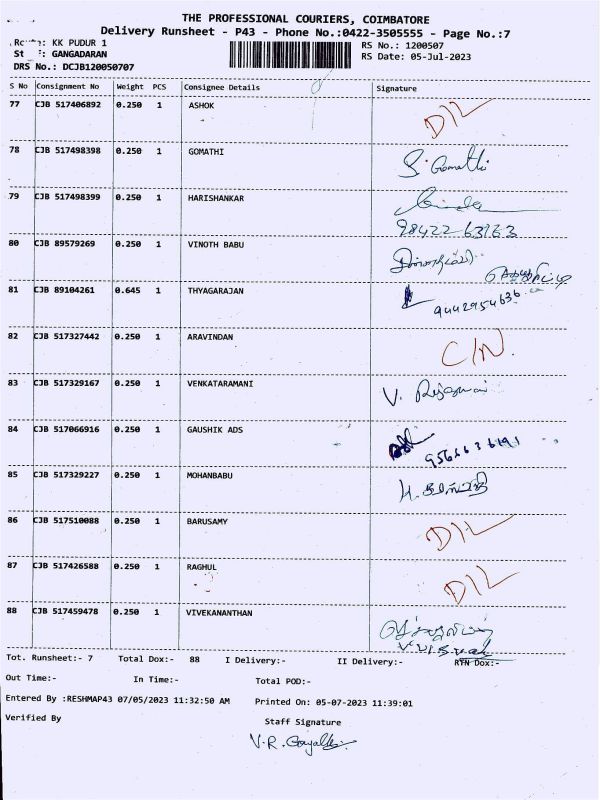 THE PROFESSIONAL COURIERS, COIMBATORE
Delivery Runsheet - P43 - Phone No.:0422-3505555 - Page No.:7
KK PUDUR 1 RS No.: 1200507
GANGADARAN RS Date: 05-Jul-2023
DRS No.: DCJB120050707
S No Consignment No Weight PCS Consignee Details Signature
77 CJB 517406892 0.250 1 ASHOK D/L
78 CJB 517498398 0.250 1 GOMATHI S. Gomathi
79 CJB 517498399 0.250 1 HARISHANKAR
98422-63163
80 CJB 89579269 0.250 1 VINOTH BABU
81 CJB 89104261 0.645 1 THYAGARAJAN 9442954636
82 CJB 517327442 0.250 1 ARAVINDAN C/N.
83 CJB 517329167 0.250 1 VENKATARAMANI V.
84 CJB 517066916 0.250 1 GAUSHIK ADS
85 CJB 517329227 0.250 1 MOHANBABU
86 CJB 517510088 0.250 1 BARUSAMY D/L
87 CJB 517426588 0.250 1 RAGHUL D/L
88 CJB 517459478 0.250 1 VIVEKANANTHAN
Tot. Runsheet:- 7 Total Dox:- 88 I Delivery:- II Delivery:- RTN Dox:-
Out Time:- In Time:- Total POD:-
Entered By :RESHMAP43 07/05/2023 11:32:50 AM Printed On: 05-07-2023 11:39:01
Verified By Staff Signature
V.R.